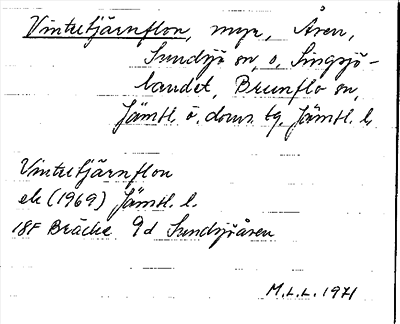 Vintertjärnflon, myr, Åsen,
Sundsjö sn, o, Singsjö-
landet, Brunflo sn,
Jämtl. ö. doms. tg. Jämtl. l.
Vintertjärnflon
ek (1969) Jämtl. l.
18F Bräcke 9d Sundsjöåsen
M.L.L. 1971